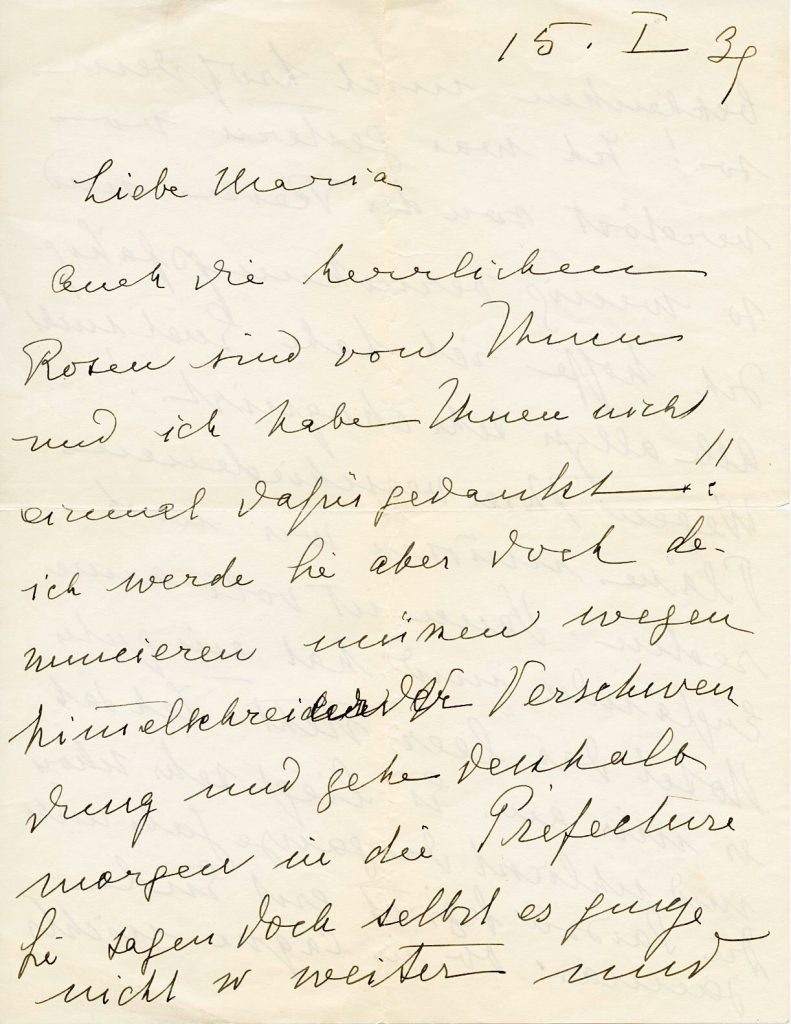 15. I 39
Liebe Maria
Auch die herrlichen
Rosen sind von Ihnen
und ich habe Ihnen nicht
einmal dafür gedankt !!
ich werde Sie aber doch de-
nuncieren müssen wegen
himmelschreiender Verschwen
dung und gehe desshalb
morgen in die Préfecture
Sie sagen doch selbst es ginge
nicht so weiter und